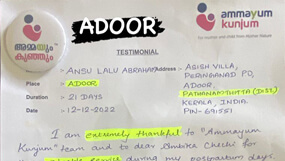 അമ്മയും
കുഞ്ഞും
ADOOR
ammayum
kunjum
TESTIMONIAL
: ANSU LALU ABRAHAM
Address : AGISH VILLA,
PERINGANAD PO,
Place : ADOOR
ADOOR,
PATHANAMTHITTA (DIST)
Duration : 21 DAYS
KERALA, INDIA.
Date : 12-12-2022
PIN-691551
I am extremely thankful to "Ammayum
Kunjum" team and to dear Ambika Chechi for
service during my postpartum days